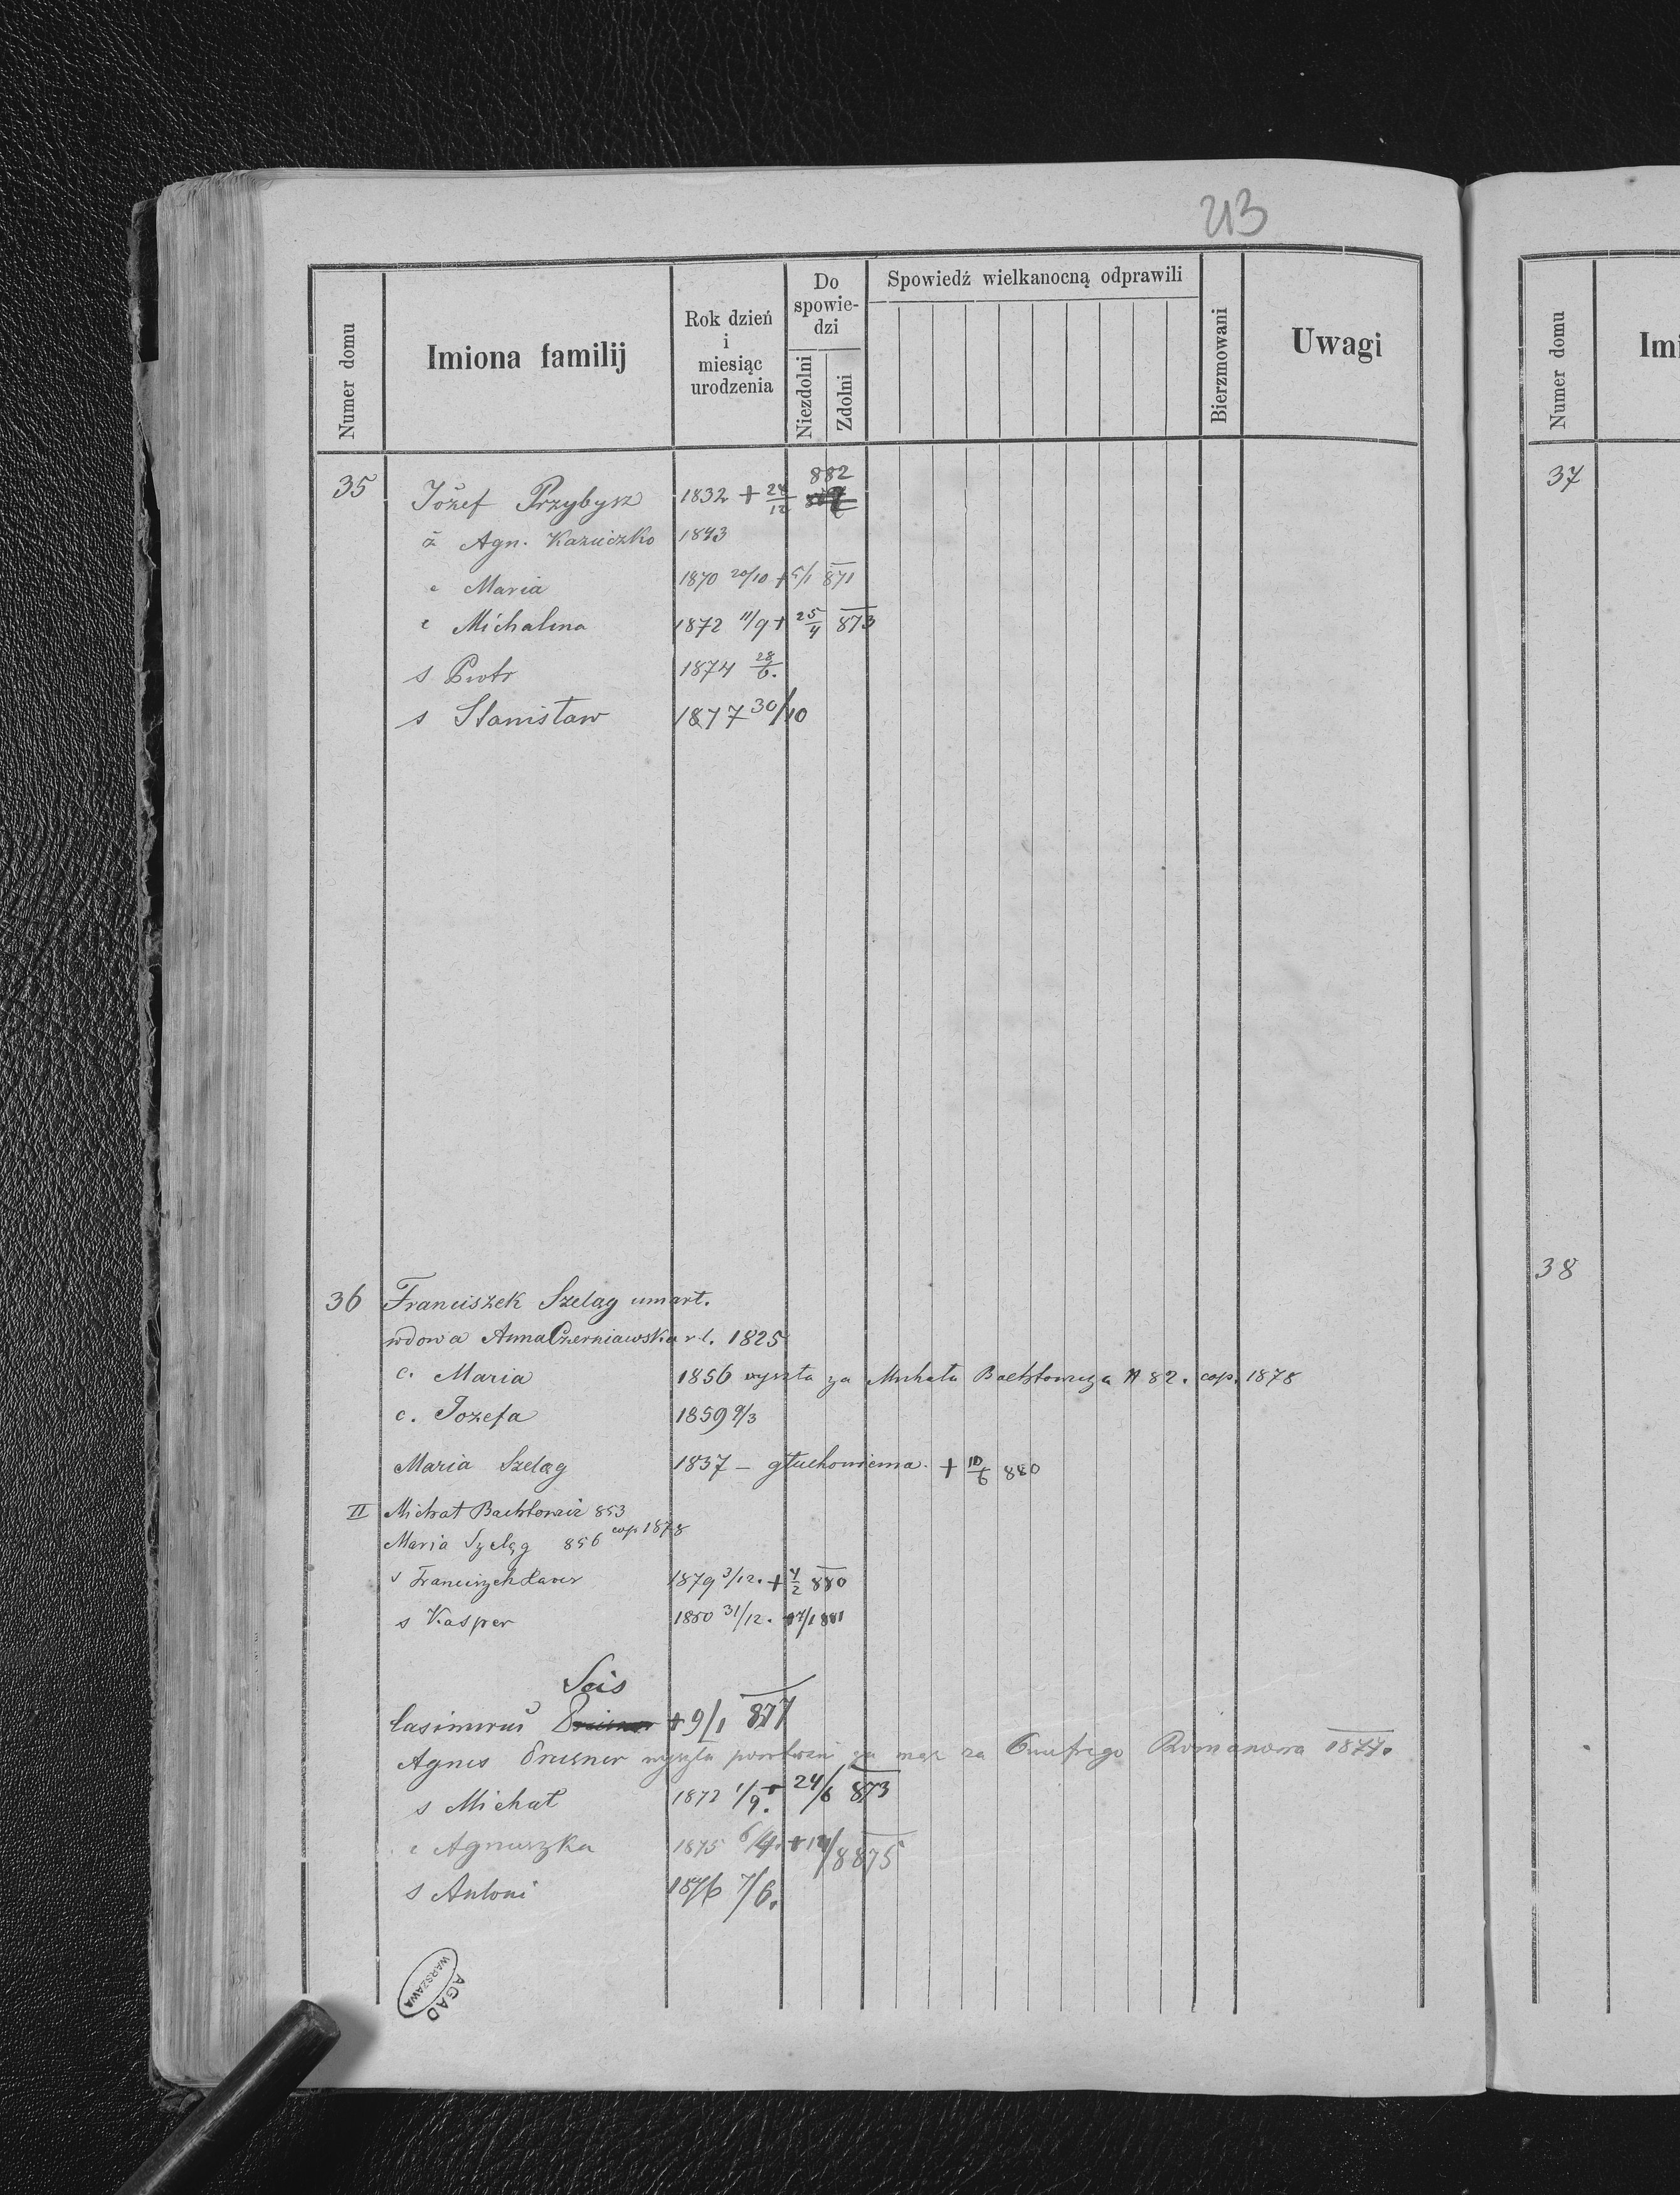 213
Numer domu
Imiona familij
Rok dzień i miesiąc urodzenia
Do spowiedzi
Niezdolni
Zdolni
Spowiedź wielkanocną odprawili
Bierzmowani
Uwagi
35 Józef Przybysz 1832 + 24/12 882
ż Agn. Kazuiczko 1843
c Maria 1870 20/10 + 5/1 871
c Michalina 1872 11/9 + 25/4 873
s Piotr 1874 28/6.
s Stanisław 1877 30/10
36 Franciszek Szeląg umart.
wdowa Anna Czerniawska r. l. 1825
c. Maria 1856 wyszła za Michała Bachłowicza N 82. cop. 1878
c. Jozefa 1859 9/3
Maria Szeląg 1837 – głuchoniema. + 10/6 880
II Michał Bachłowicz 853
Maria Szeląg 856 cop 1878
s Franciszek Xawer 1879 3/12. + 4/2 880
s Kasper 1880 31/12. +7/1 881
Scis
Casimirus + 9/1 877
Agnes Preisner wyszła za mąż za Onufrego Romanowa 1877.
s Michał 1872 1/9. + 24/6 873
c Agnieszka 1875 6/4. + 12/8 875
s Antoni 1876 7/6.
AGAD
WARSZAWA
Numer domu
Imi
37
38